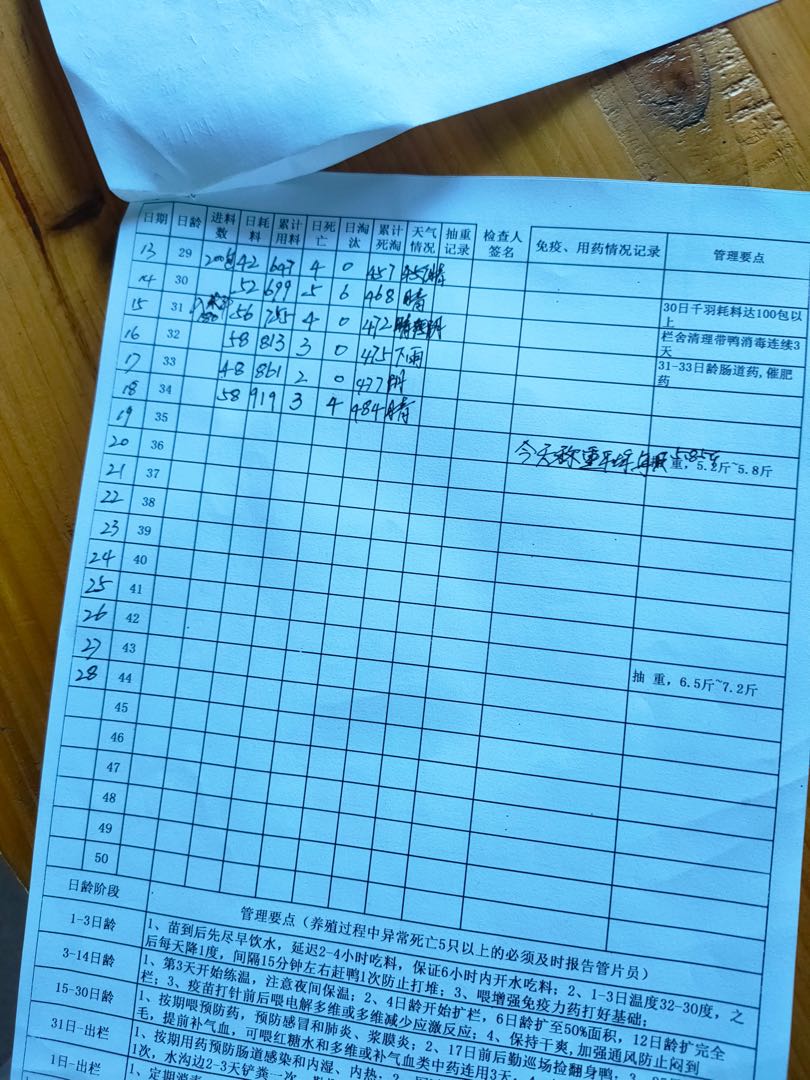 日期 日龄 进料数 日耗料 累计用料 日死亡 日淘汰 累计死淘 天气情况 抽重记录 检查人签名 免疫、用药情况记录 管理要点
13 29 200包 42 647 4 0 457
14 30 52 699 5 6 468 晴
15 31 56 755 4 0 472 30日千羽耗料达100包以上
16 32 58 813 3 0 475 下雨 栏舍清理带鸭消毒连续3天
17 33 48 861 2 0 477 阴 31-33日龄肠道药,催肥药
18 34 58 919 3 4 484 晴
19 35
20 36 今天称重 重,5.2斤~5.8斤
21 37
22 38
23 39
24 40
25 41
26 42
27 43
28 44 抽 重,6.5斤~7.2斤
45
46
47
48
49
50
日龄阶段 管理要点(养殖过程中异常死亡5只以上的必须及时报告管片员)
1-3日龄 1、苗到后先尽早饮水,延迟2-4小时吃料,保证6小时内开水吃料;2、1-3日温度32-30度,之
后每天降1度,间隔15分钟左右赶鸭1次防止打堆;3、喂增强免疫力药打好基础;
3-14日龄 1、第3天开始练温,注意夜间保温;2、4日龄开始扩栏,6日龄扩至50%面积,12日龄扩完全
栏;3、疫苗打针前后喂电解多维或多维减少应激反应;4、保持干爽,加强通风防止闷到
15-30日龄 1、按期喂预防药,预防感冒和肺炎、浆膜炎;2、17日前后勤巡场捡翻身鸭;3、
毛,提前补气血,可喂红糖水和多维或补气血类中药连用3天,4、
31日-出栏 1、按期用药预防肠道感染和内湿、内热;2、
1次,水沟边2-3天铲粪一次
1日-出栏 1、定期消毒